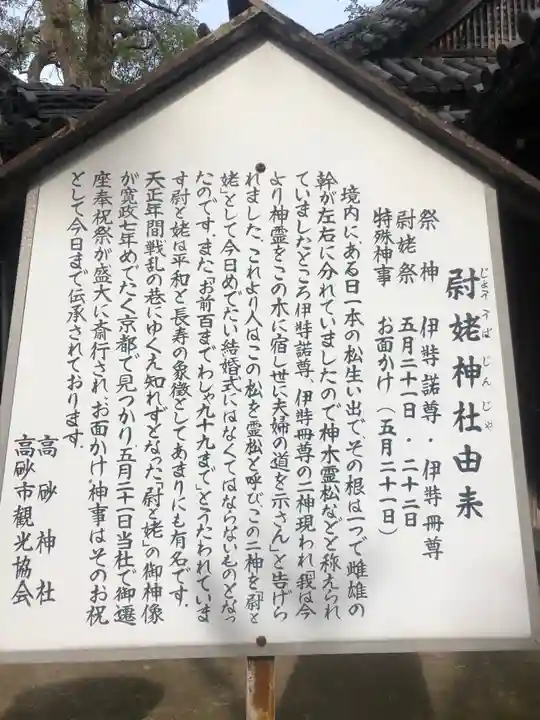 尉姥神社由来
じょううばじんじゃ
祭神 伊弉諾尊・伊弉冊尊
尉姥祭 五月二十一日・二十二日
特殊神事 お面かけ(五月二十一日)
境内にある日一本の松生い出で、その根は一つで雌雄の
幹が左右に分れていましたので神木霊松などと称えられ
ていましたところ伊弉諾尊、伊弉冊尊の二神現われ「我は今
より神霊をこの木に宿し世に夫婦の道を示さん」と告げら
れました、これより人はこの松を霊松と呼びこの二神を「尉と
姥」として今日めでたい結婚式にはなくてはならないものとなっ
たのです。また「お前百までわしゃ九十九まで」とうたわれていま
す尉と姥は平和と長寿の象徴としてあまりにも有名です.
天正年間戦乱の巷にゆくえ知れずとなった「尉と姥」の御神像
が寛政七年めでたく京都で見つかり五月二十一日当社で御遷
座奉祝祭が盛大に斎行され、お面かけ神事はそのお祝
として今日まで伝承されております.
高砂神社
高砂市観光協会